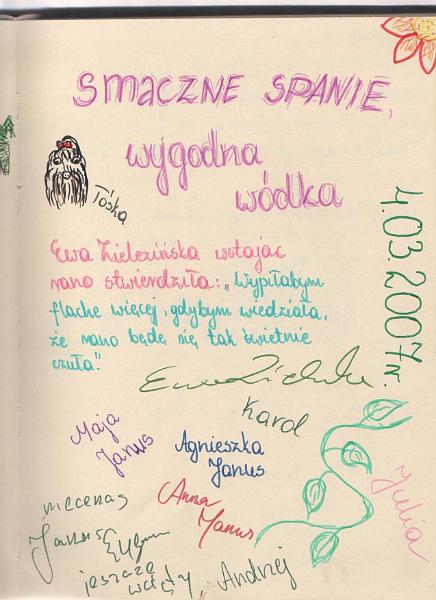 SMACZNE SPANIE,
wygodna
wódka
Tośka
4.03.2007r.
Ewa Zielezińska wstając
rano stwierdziła: „Wypiłabym
flachę więcej, gdybym wiedziała,
że rano będę się tak świetnie
czuła."
Karol
Maja
Janus
Agnieszka
Janus
Julia
mecenas
Janusz
Anna
Janus
jeszcze
Andrzej